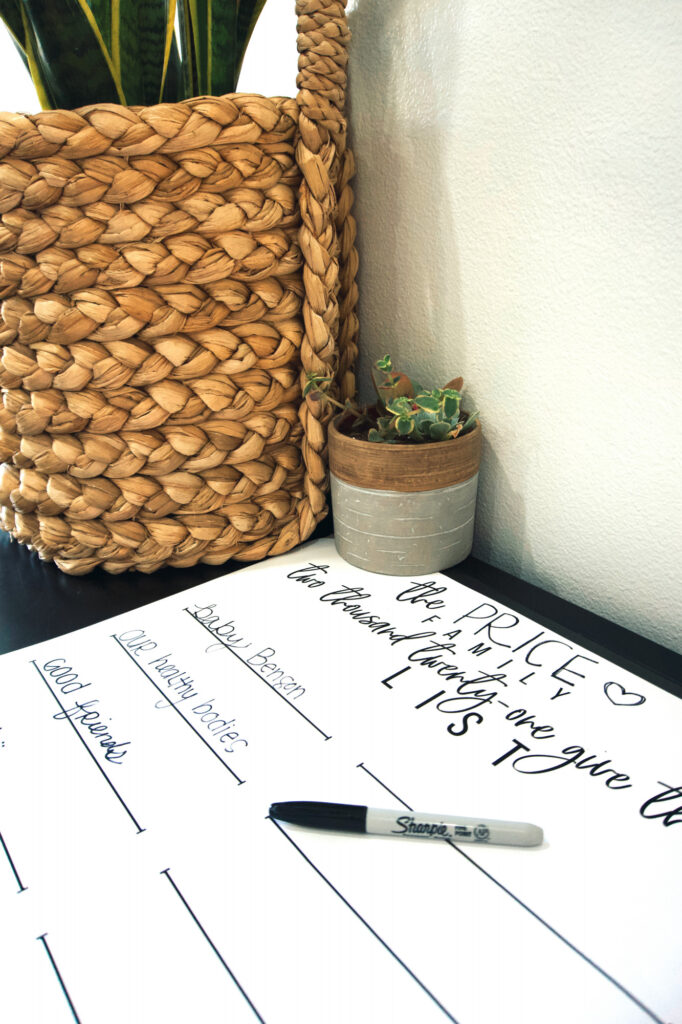 the PRICE
FAMILY
two thousand twenty-one give
LIST
baby Benson
our healthy bodies
good friends
Sharpie
FINE POINT AP